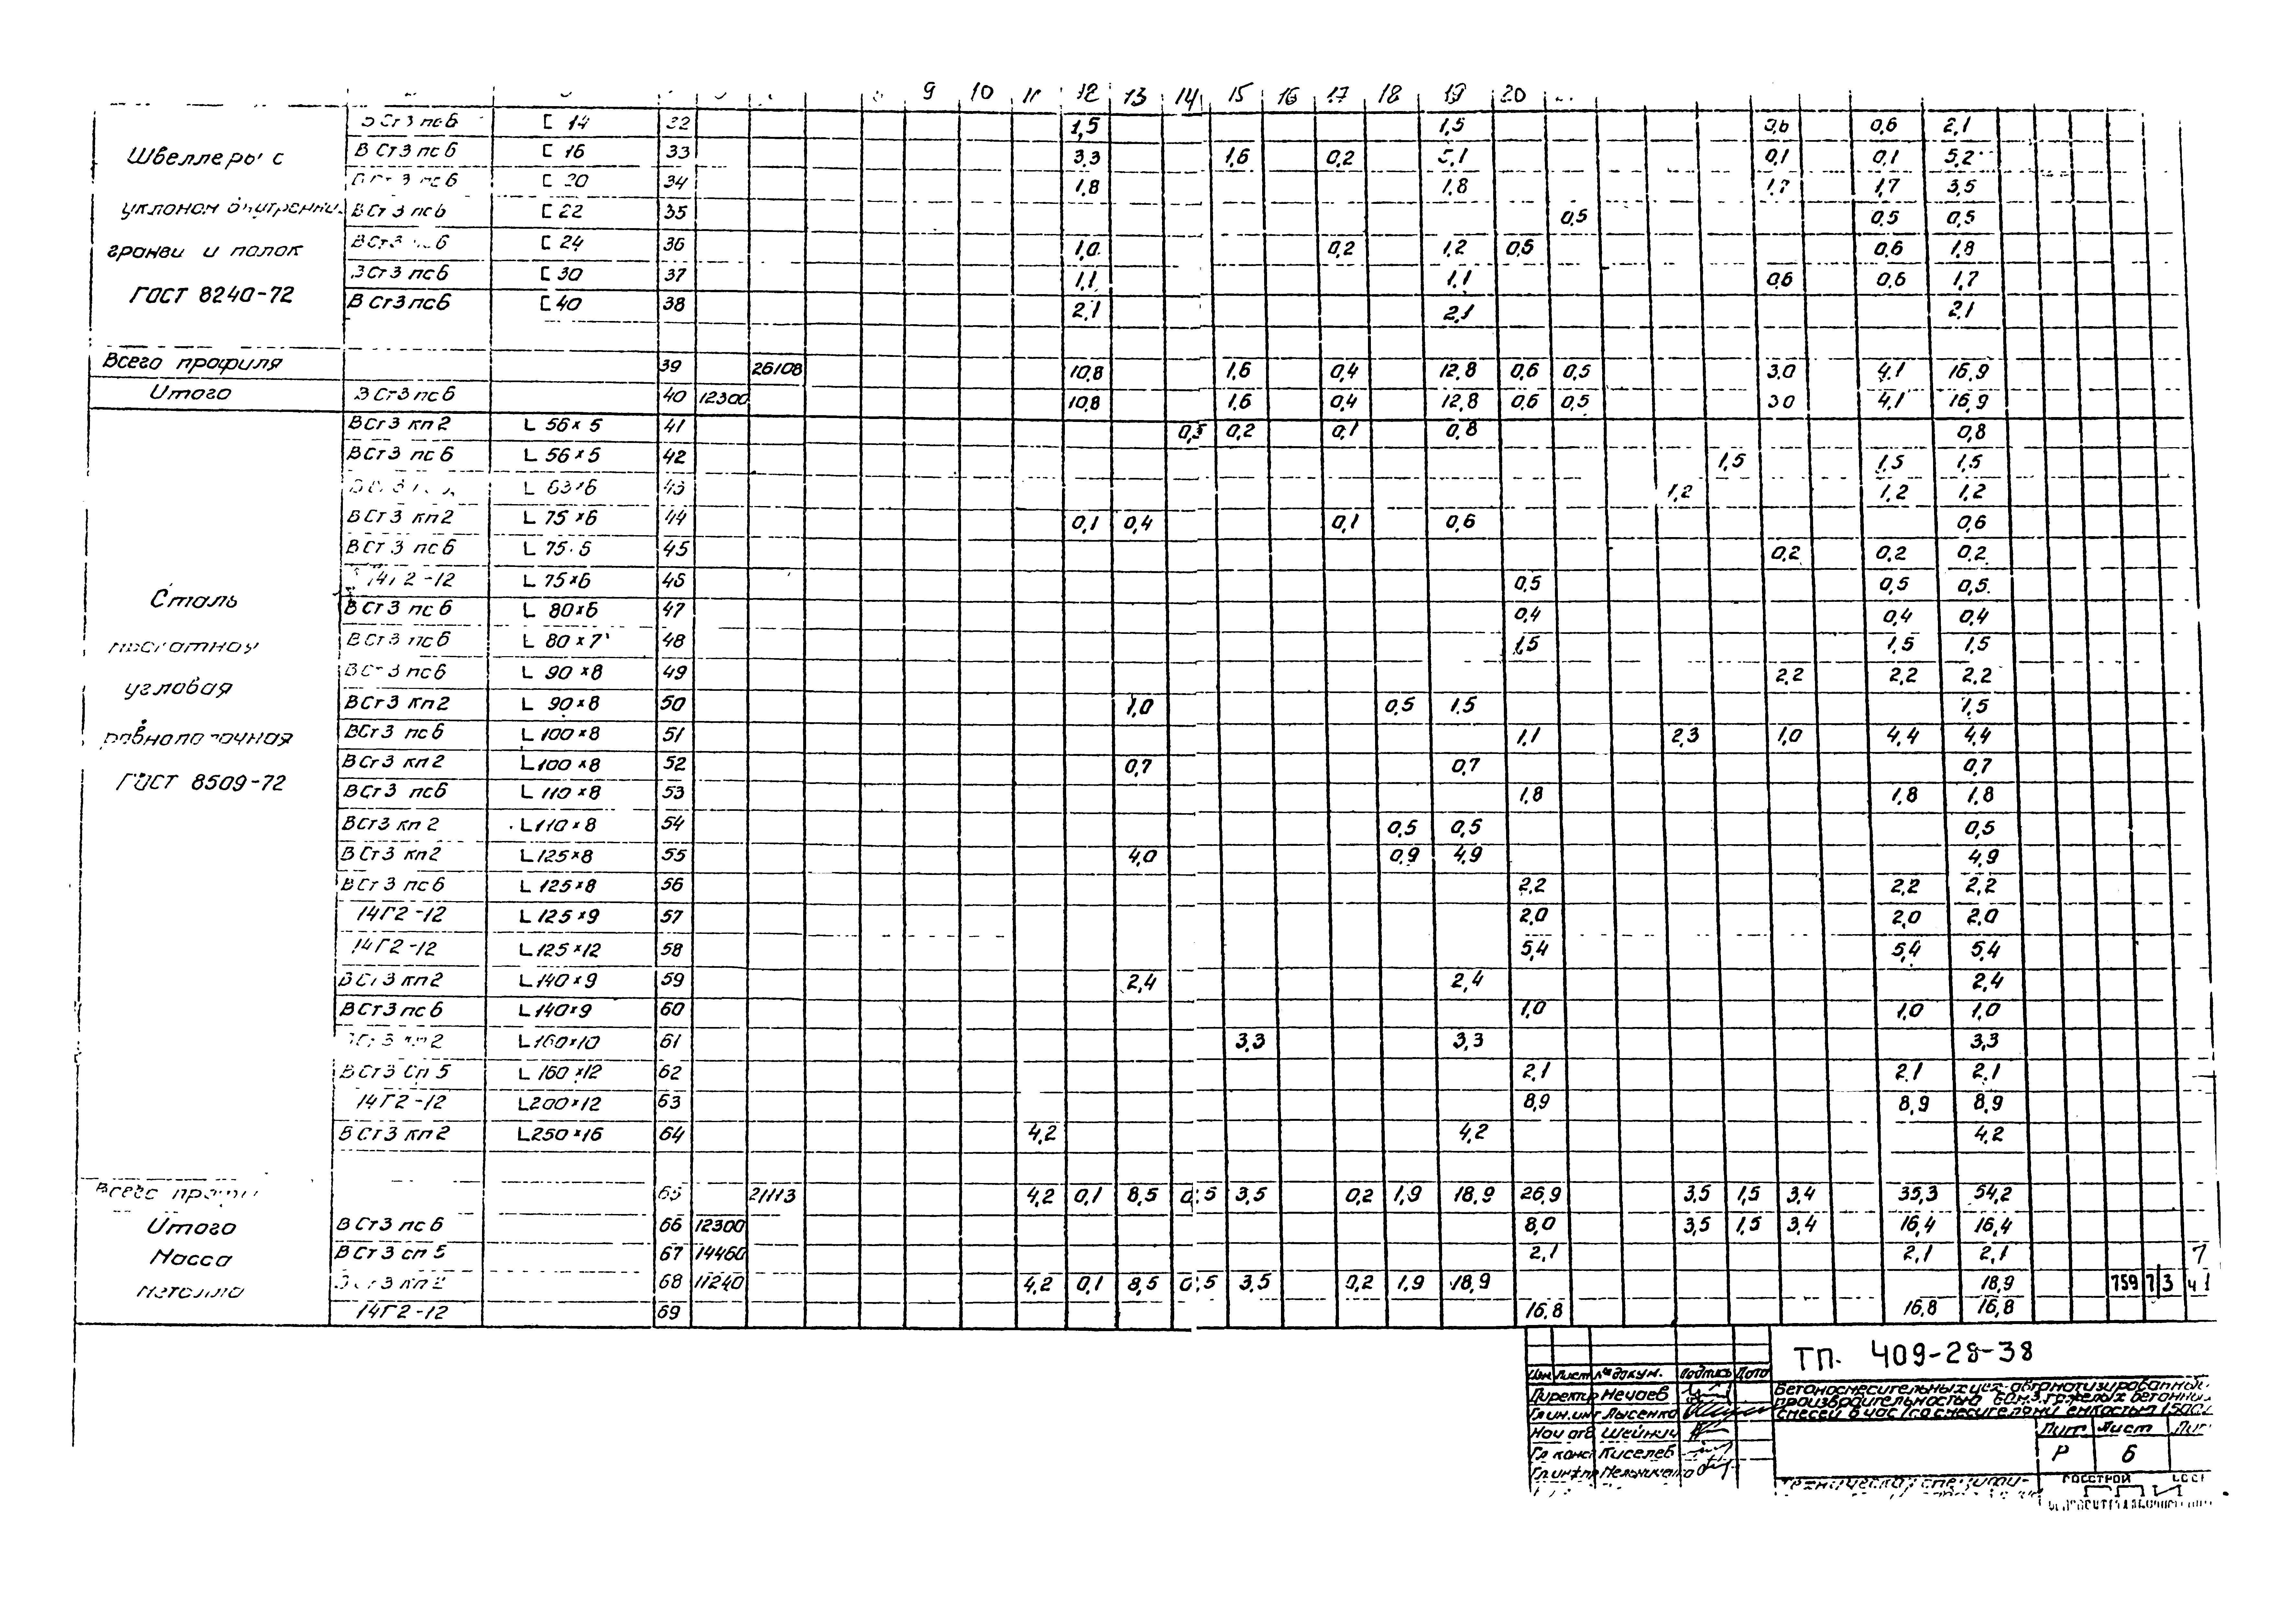 9 10 11 12 13 14 15 16 17 18 19 20
Ст3 пс6 [ 14 32 1,5 1,5 0,6 0,6 2,1
Швеллеры с
В Ст3 пс6 [ 16 33 3,3 1,6 0,2 5,1 0,1 0,1 5,2
3 пс6 [ 20 34 1,8 1,8 1,7 1,7 3,5
уклоном
В Ст3 пс6 [ 22 35 0,5 0,5 0,5
В Ст3 6 [ 24 36 1,0 0,2 1,2 0,5 0,6 1,8
и полок
Ст3 пс6 [ 30 37 1,1 1,1 0,6 0,6 1,7
ГОСТ 8240-72
В Ст3 пс6 [ 40 38 2,1 2,1 2,1
Всего профиля 39 26108 10,8 1,6 0,4 12,8 0,6 0,5 3,0 4,1 16,9
Итого В Ст3 пс6 40 12300 10,8 1,6 0,4 12,8 0,6 0,5 3,0 4,1 16,9
В Ст3 кп2 L 56×5 41 0,5 0,2 0,1 0,8 0,8
В Ст3 пс6 L 56×5 42 1,5 1,5 1,5
L 63×6 43 1,2 1,2 1,2
В Ст3 кп2 L 75×6 44 0,1 0,4 0,1 0,6 0,6
В Ст3 пс6 L 75 45 0,2 0,2 0,2
14Г2-12 L 75×6 46 0,5 0,5 0,5
Сталь
В Ст3 пс6 L 80×6 47 0,4 0,4 0,4
прокатная
В Ст3 пс6 L 80×7 48 1,5 1,5 1,5
В Ст3 пс6 L 90×8 49 2,2 2,2 2,2
угловая
В Ст3 кп2 L 90×8 50 1,0 0,5 1,5 1,5
равнополочная
В Ст3 пс6 L 100×8 51 1,1 2,3 1,0 4,4 4,4
В Ст3 кп2 L 100×8 52 0,7 0,7 0,7
ГОСТ 8509-72
В Ст3 пс6 L 110×8 53 1,8 1,8 1,8
В Ст3 кп2 L 110×8 54 0,5 0,5 0,5
В Ст3 кп2 L 125×8 55 4,0 0,9 4,9 4,9
В Ст3 пс6 L 125×8 56 2,2 2,2 2,2
14Г2-12 L 125×9 57 2,0 2,0 2,0
14Г2-12 L 125×12 58 5,4 5,4 5,4
В Ст3 кп2 L 140×9 59 2,4 2,4 2,4
В Ст3 пс6 L 140×9 60 1,0 1,0 1,0
Ст3 кп2 L 160×10 61 3,3 3,3 3,3
В Ст3 Сп 5 L 160×12 62 2,1 2,1 2,1
14Г2-12 L 200×12 63 8,9 8,9 8,9
В Ст3 кп2 L 250×16 64 4,2 4,2 4,2
Всего 65 21113 4,2 0,1 8,5 0,5 3,5 0,2 1,9 18,9 26,9 3,5 1,5 3,4 35,3 54,2
Итого В Ст3 пс6 66 12300 8,0 3,5 1,5 3,4 16,4 16,4
Масса В Ст3 сп 5 67 14460 2,1 2,1 2,1 7
металла Ст3 кп2 68 11240 4,2 0,1 8,5 0,5 3,5 0,2 1,9 18,9 18,9 759 7/3 ч 1
14Г2-12 69 16,8 16,8 16,8
ТП. 409-28-38
Изм Лист № докум. Подпись Дата
Директ Нечаев
Гл.инж Лысенко
Нач отд Шейнич
Гл конс Киселев
Гл инж пр Мельниченко
Бетоносмесительный цех автоматизированный
производительностью 60 м3 тяжелых бетонных
смесей в час /со смесителями емкостью 1500л
Лит. Лист
Р 6
Техническая
ГОССТРОЙ СССР